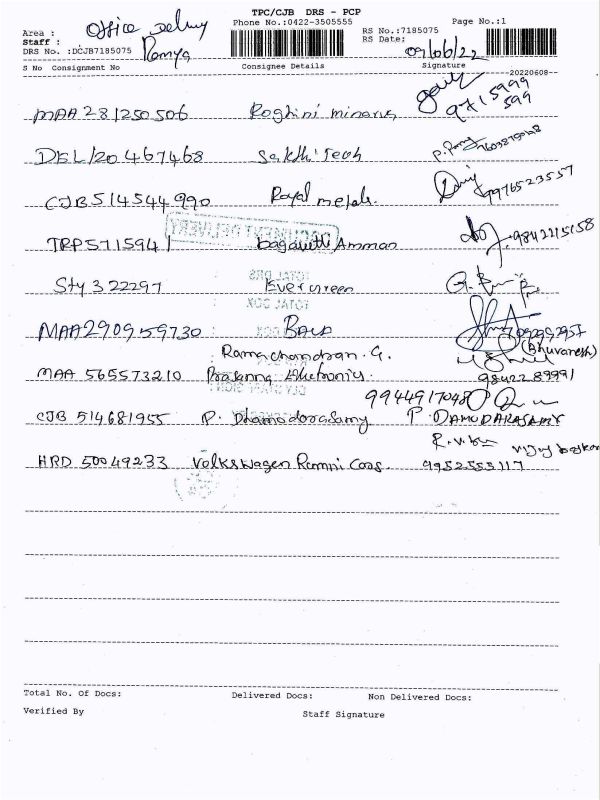 TPC/CJB DRS - PCP
Phone No.:0422-3505555
Page No.:1
Area : Office
Staff : Ramya
DRS No. :DCJB7185075
RS No.:7185075
RS Date: 09/06/22
S No Consignment No Consignee Details Signature
--20220608--
MAA 281250506 Roghini minarva 97 15999 599
DEL/20 467468 Sakthi Tech
CJB 514544990 Royal metals. 9976523557
DOCUMENT DELIVERY
TRP 5715941 bagavathi Amman 9842215158
TOTAL DRS
Sty 322297 Evergreen
TOTAL COX
MAA290959730 BALA
(Bhuvanesh)
Ramachandran G.
MAA 565573210 Prasanna Electronics 9842289991
9944917048
CJB 514681955 P. Dhamodorasamy P. DAMODARASAMY
HRD 50049233 Volkswagen Ramni Cars. 9952555117
Total No. Of Docs: Delivered Docs: Non Delivered Docs:
Verified By Staff Signature